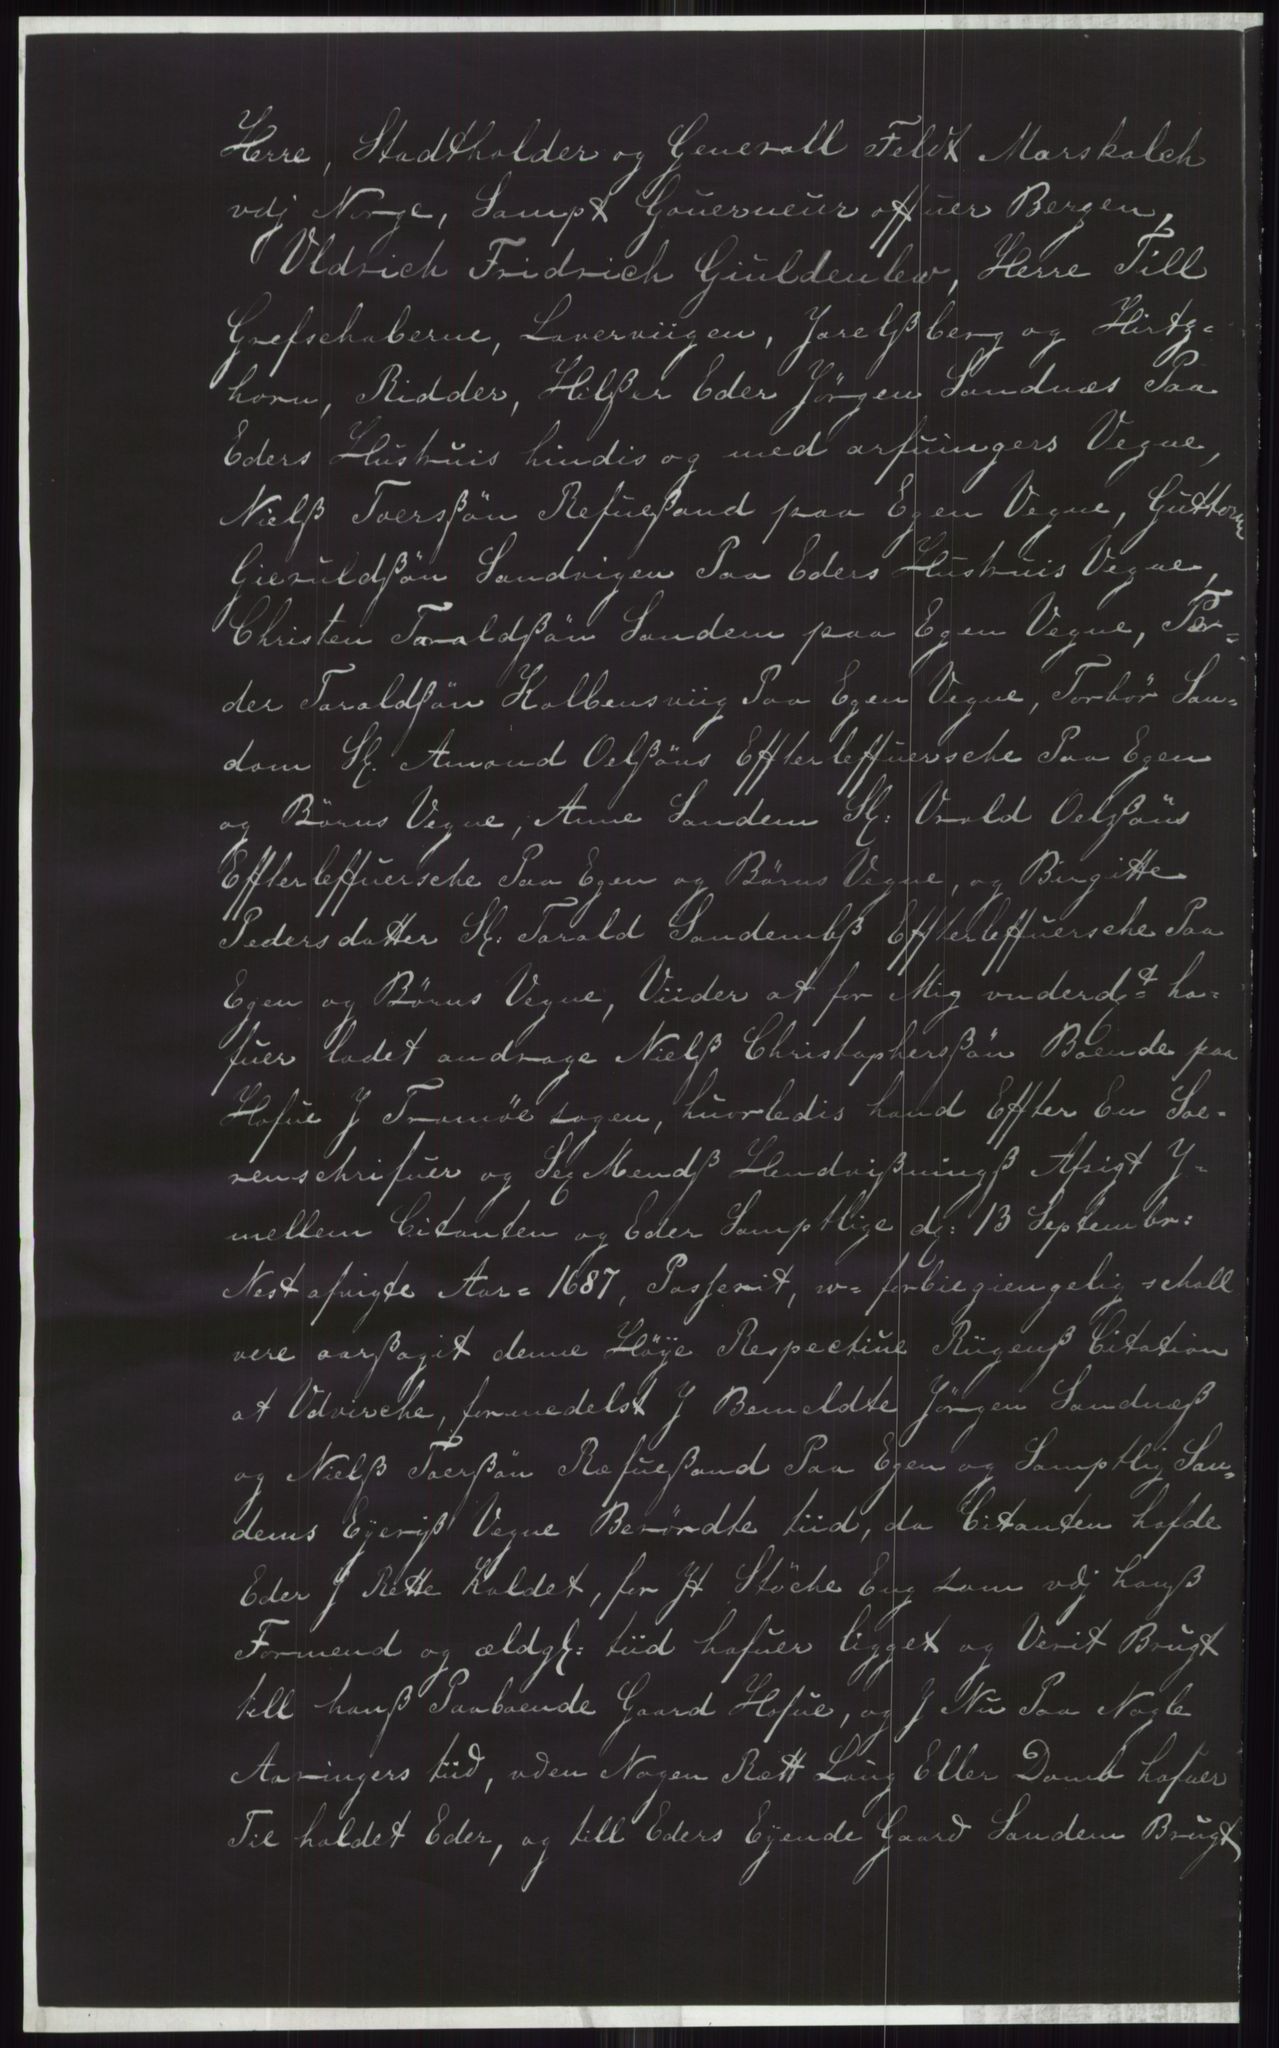 Herre, Stadtholder og Generall Feldt Marskalch
vdj Norge, Sampt Gouerneur offuer Bergen,
Vldrich Fridrich Giuldenlew, Herre Till
Grefschaberne, Laverviigen, Jarelßberg og Hirtz=
horn, Ridder, Hilßer Eder Jörgen Sandnæs Paa
Eders Hustruis hindis og med arfuingers Vegne,
Nielß Toersßön Refueßand paa Egen Vegne, Guttorm
Gieruldßön Sandvigen Paa Eders Hustruis Vegne,
Christen Taraldßön Sandem paa Egen Vegne, Per=
der Taraldßön Kolbensviig Paa Egen Vegne, Torbör San=
dom Sl. Amond Oelßöns Effterleffuersche Paa Egen
og Börns Vegne, Anne Sandem Sl: Vrold Oelßöns
Effterleffuersche Paa Egen og Börns Vegne, og Birgitte
Pedersdatter Sl: Tarald Sandembß Effterleffuersche Paa
Egen og Börns Vegne, Viider at for Mig vnderdt ha=
fuer ladet andrage Nielß Christophersßön Boende paa
Hofue J Tromöe sogen, huorledis hand Effter En Soe=
renschrifuer og Sex Mendß Hendvißningß Afsigt Y=
mellem Citanten og Eder Samptlige dj: 13 Septembr:
Nest afvigte Aar= 1687, Passerit, w= forbiegiengelig schall
vere aarßagit denne Höÿe Respectiue Rügenß Citation
at Vdvirche, formedelst J Bemeldte Jörgen Sandneß
og Nielß Toerßön Refueßand Paa Egen og Samptlig San=
dems Eÿeriß Vegne Berördte tiid, da Citanten hafde
Eder J Rette kaldet, for Jt Stöche Eng som vdj hanß
Formend og ældgl: tiid hafuer ligget og Verit Brugt
till hanß Paaboende Gaard Hofue, og J Nu Paa Nogle
Aaringers tiid, vden Nogen Rett Laug Eller Domb hafuer
Til holdet Eder, og till Eders Eÿende Gaard Sandem Brugt